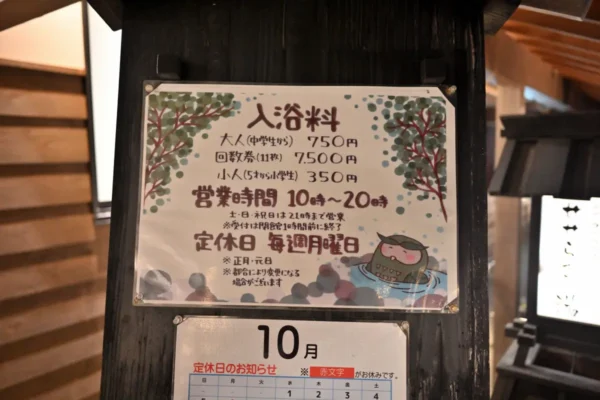 入浴料
大人(中学生から) 750円
回数券(11枚) 7,500円
小人(5才から小学生) 350円
営業時間 10時～20時
土・日・祝日は21時まで営業
※受付は閉館1時間前に終了
定休日 毎週月曜日
※正月・元日
※都合により変更になる
場合がございます
10月
定休日のお知らせ ※ 赤文字 がお休みです。
日 月 火 水 木 金 土
1 2 3 4